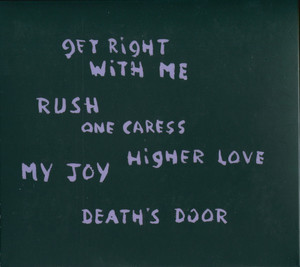 get Right
With Me
Rush
One Caress
Higher Love
My Joy
Death's Door